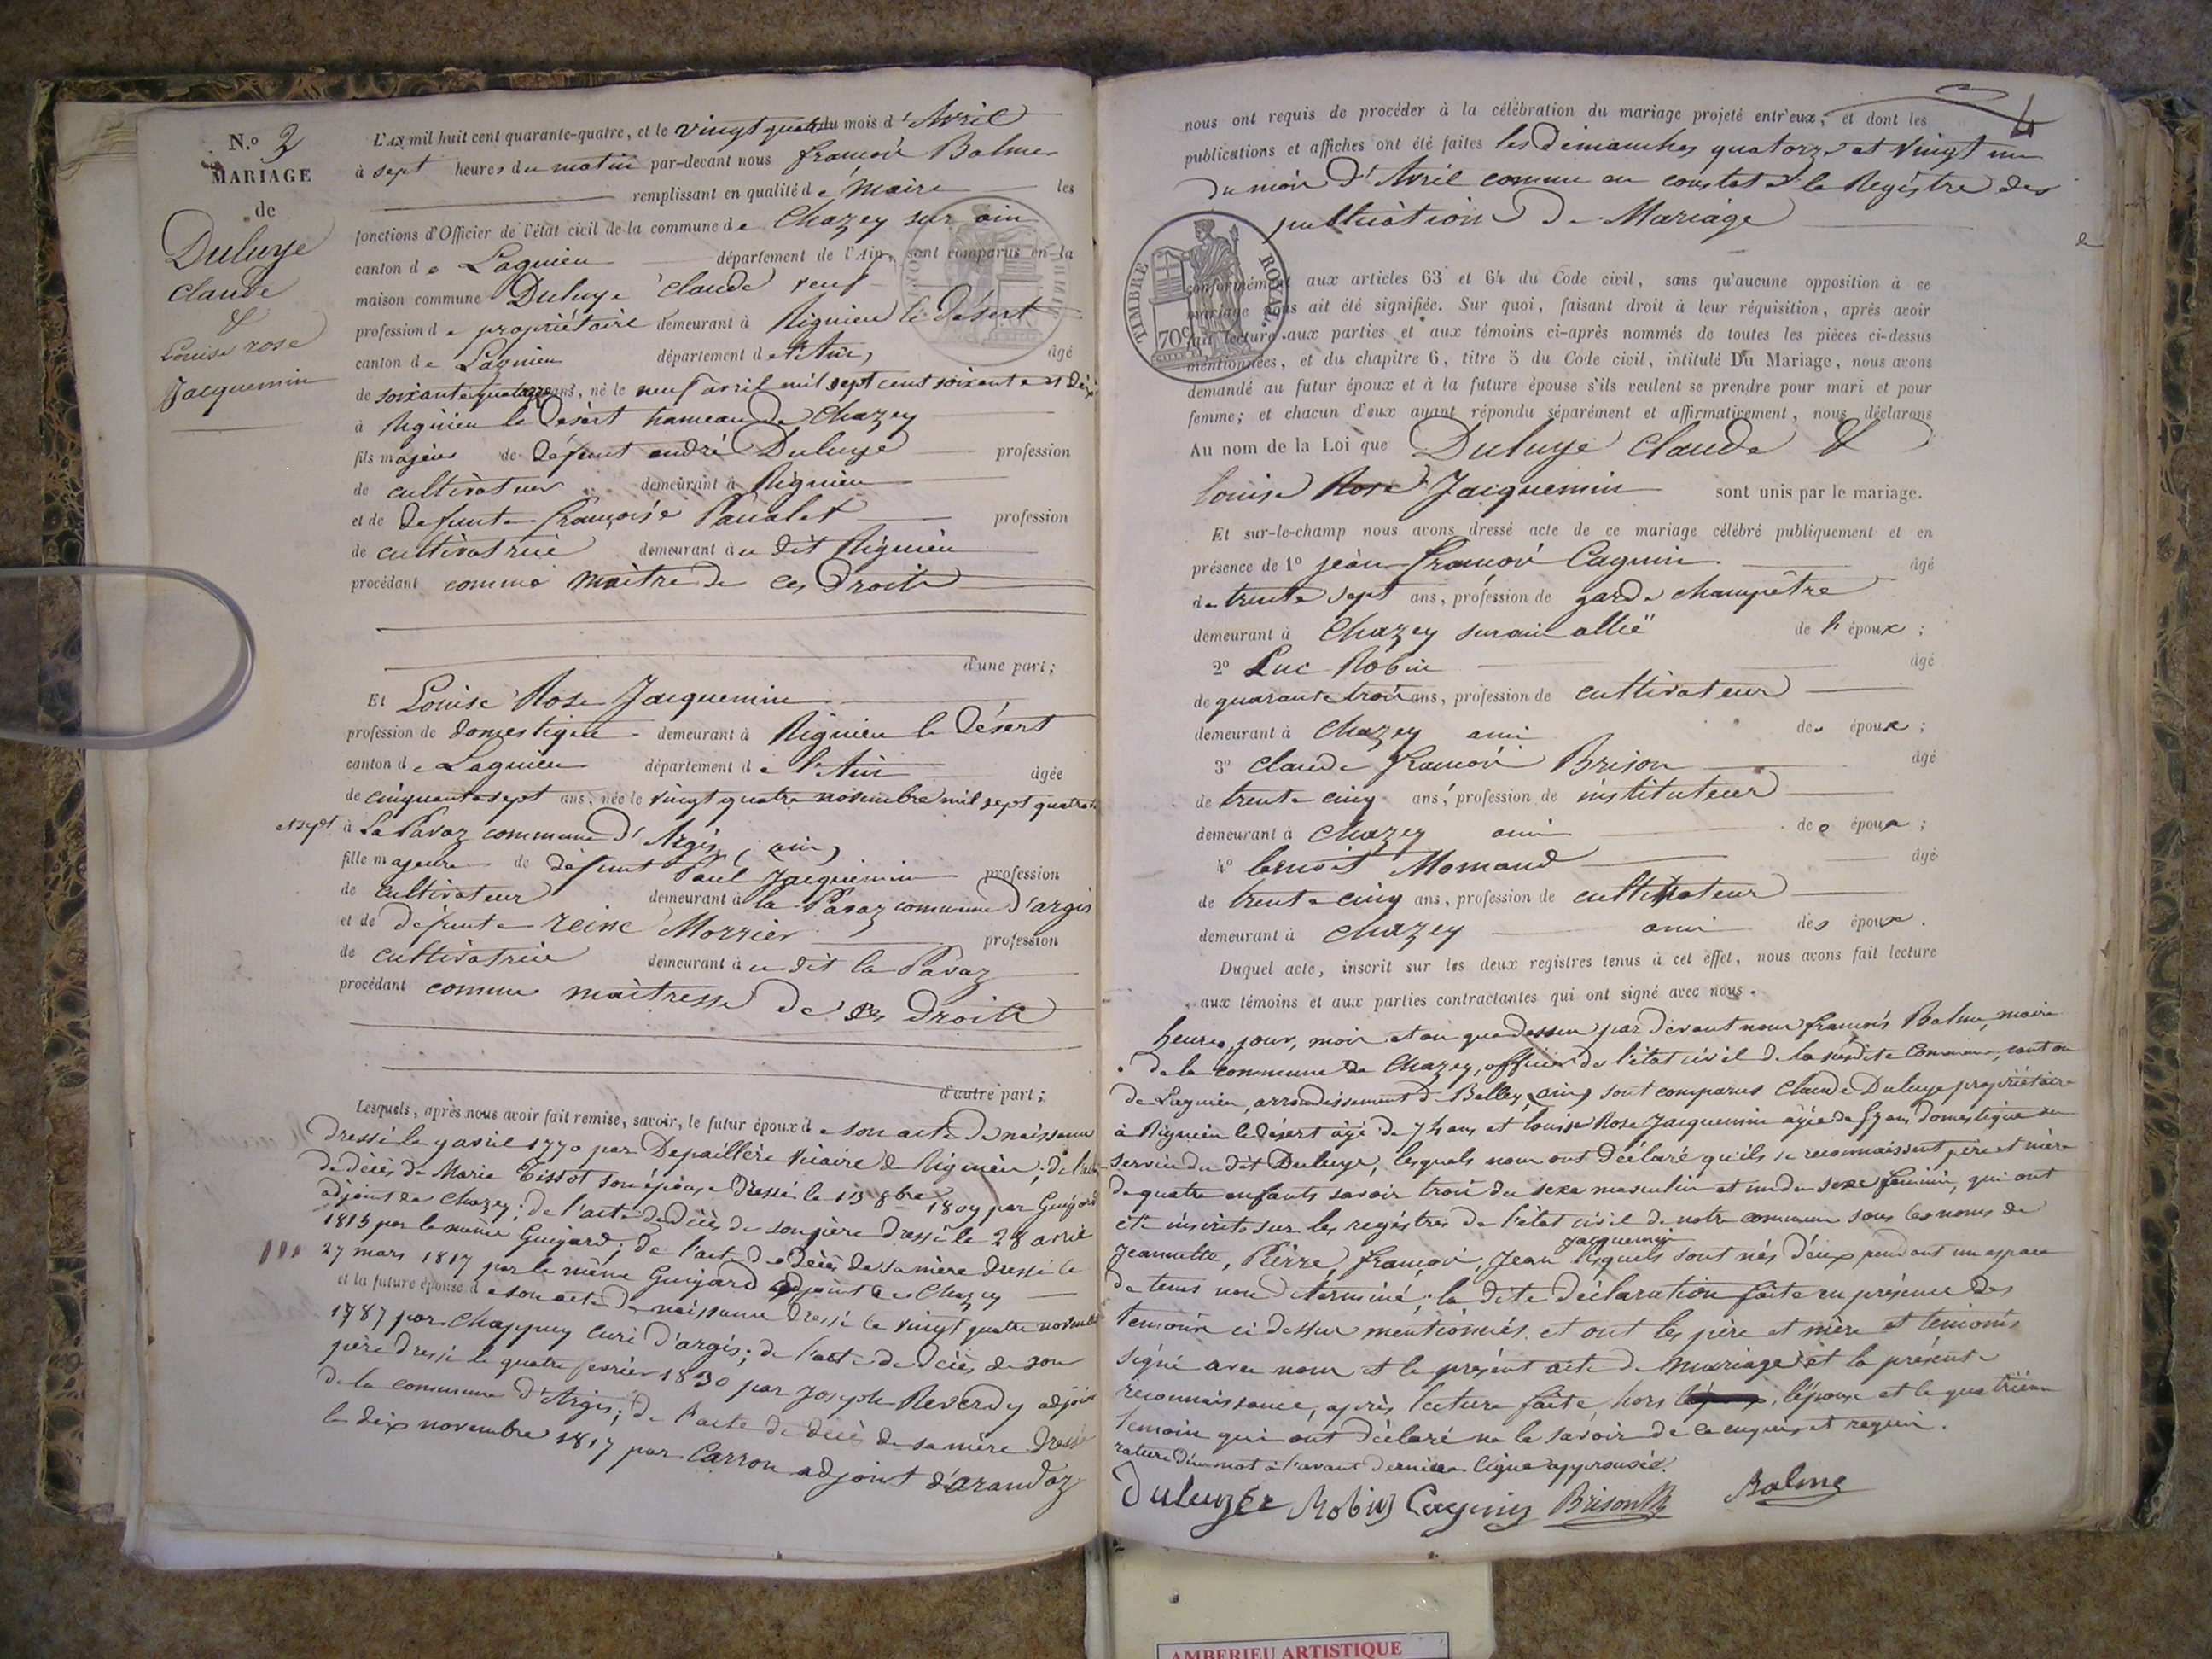 N.o 3
MARIAGE
de
Duluye
Claude
&
Louise rose
Jacquemin
L'AN mil huit cent quarante-quatre, et le vingt quatre du mois d'Avril
à sept heures du matin par-devant nous françois Balme
remplissant en qualité de Maire les
fonctions d'Officier de l'état civil de la commune de Chazey sur ain
canton de Lagnieu département de l'Ain, sont comparus en la
maison commune Duluye Claude veuf
profession de propriétaire demeurant à Rignieu le Désert
canton de Lagnieu département de l'Ain, âgé
de soixante quatorze ans, né le neuf avril mil sept cent soixante et dix
à Rignieu le Désert hameau de Chazey
fils majeur de défunt andré Duluye profession
de cultivateur demeurant à Rignieu
et de defunte françoise Paualet profession
de cultivatrice demeurant au dit Rignieu
procédant comme maître de ces Droits
d'une part;
Et Louise Rose Jacquemin
profession de domestique demeurant à Rignieu le Désert
canton de Lagnieu département de l'Ain âgée
de cinquante sept ans, née le vingt quatre novembre mil sept quatre
et sept à La Pavaz commune d'Argis, (ain)
fille majeure de défunt Paul Jacquemin profession
de cultivateur demeurant à la Pavaz commune d'argis
et de défunte reine Morrier profession
de cultivatrice demeurant au dit la Pavaz
procédant comme maîtresse de ses Droits
d'autre part;
Lesquels, après nous avoir fait remise, savoir, le futur époux de son acte de naissance
dressé le 9 avril 1770 par Depaillère Vicaire de Rignieu; de l'acte
de décès de Marie Tissot son épouse dressé le 13 8bre 1809 par Guigard
adjoint de Chazey; de l'acte de décès de son père dressé le 28 avril
1815 par le même Guigard; de l'acte de décès de sa mère dressé le
27 mars 1817 par le même Guigard adjoint de Chazey
et la future épouse de son acte de naissance dressé le vingt quatre novembre
1787 par Chappuy Curé d'argis; de l'acte de décès de son
père dressé le quatre fevrier 1830 par Joseph Reverdy adjoint
de la commune d'Argis; de l'acte de décès de sa mère dressé
le dix novembre 1817 par Carron adjoint d'arandaz
4
nous ont requis de procéder à la célébration du mariage projeté entr'eux, et dont les
publications et affiches ont été faites les dimanches quatorze et vingt un
du mois d'Avril comme en constate le Registre des
publication de Mariage
TIMBRE ROYAL.
70c
conformément aux articles 63 et 64 du Code civil, sans qu'aucune opposition à ce
mariage nous ait été signifiée. Sur quoi, faisant droit à leur réquisition, après avoir
fait lecture aux parties et aux témoins ci-après nommés de toutes les pièces ci-dessus
mentionnées, et du chapitre 6, titre 5 du Code civil, intitulé Du Mariage, nous avons
demandé au futur époux et à la future épouse s'ils veulent se prendre pour mari et pour
femme; et chacun d'eux ayant répondu séparément et affirmativement, nous déclarons
Au nom de la Loi que Duluye Claude &
Louise Rose Jacquemin sont unis par le mariage.
Et sur-le-champ nous avons dressé acte de ce mariage célébré publiquement et en
présence de 1o jean françois Cagnin âgé
de trente sept ans, profession de garde champêtre
demeurant à Chazey sur ain allié de l'époux;
2o Luc Robin âgé
de quarante trois ans, profession de cultivateur
demeurant à Chazey ami des époux;
3o claude françois Brison âgé
de trente cinq ans, profession de instituteur
demeurant à Chazey ami de époux;
4o benoit Momand âgé
de trente cinq ans, profession de cultivateur
demeurant à Chazey ami des époux.
Duquel acte, inscrit sur les deux registres tenus à cet effet, nous avons fait lecture
aux témoins et aux parties contractantes qui ont signé avec nous.
heure, jour, mois et an que dessus par devant nous françois Balme, maire
de la commune de Chazey, officier de l'état civil de la susdite Commune, canton
de Lagnieu, arrondissement de Belley (ain) sont comparus Claude Duluye propriétaire
à Rignieu le Désert âgé de 74 ans et Louise Rose Jacquemin âgée de 57 ans domestique au
service du dit Duluye, lesquels nous ont déclaré qu'ils se reconnaissent père et mère
de quatre enfants savoir trois du sexe masculin et un du sexe féminin, qui ont
été inscrits sur les registres de l'état civil de notre commune sous les noms de
Jeannette, Pierre, françois, Jean Jacquemin lesquels sont nés d'eux pendant un espace
de tems non déterminé; la dite déclaration faite en présence des
temoins ci dessus mentionnés et ont les père et mère et témoins
signé avec nous et le présent acte de mariage et la présente
reconnaissance, après lecture faite, hors l'épouse et le quatrième
temoin qui ont déclaré ne le savoir de ce enquis et requis.
rature d'un mot à l'avant dernière ligne approuvée.
Duluyer Robin Cagnin Brison Balme
AMBERIEU ARTISTIQUE